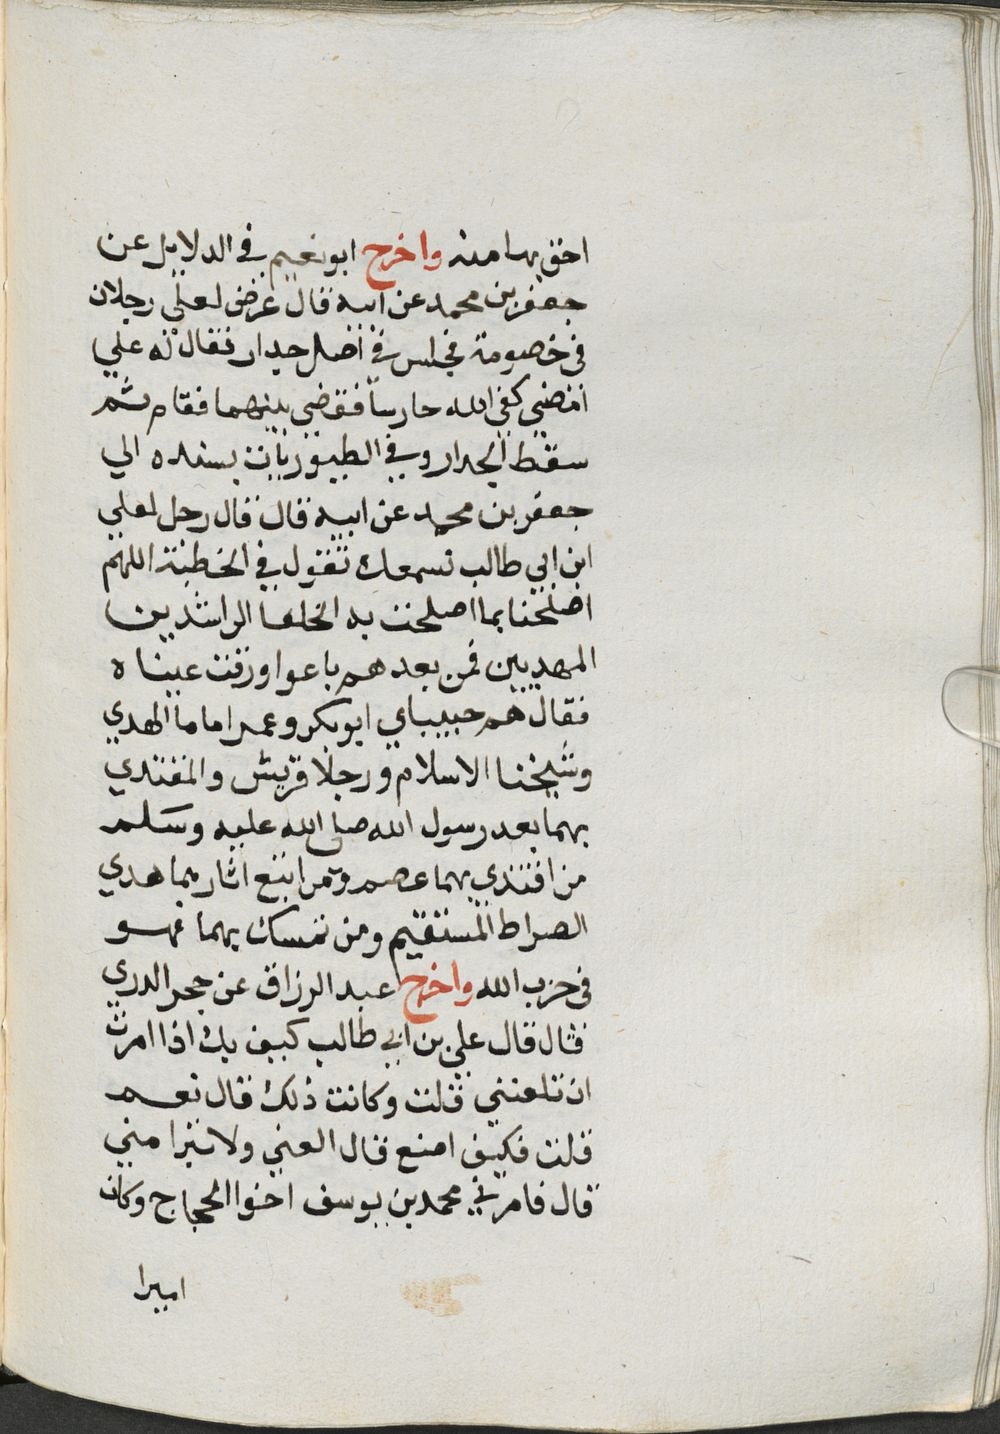 احق بها منه واخرج ابو نعيم في الدلايل عن
جعفر بن محمد عن ابيه قال عرض لعلي رجلان
في خصومة فجلس في اصل جدار فقال له علي
امضي كفي الله حارسا فقضي بينهما فقام ثم
سقط الجدار وفي الطيوريات بسنده الي
جعفر بن محمد عن ابيه قال قال رجل لعلي
ابن ابي طالب نسمعك تقول في الخطبة اللهم
اصلحنا بما اصلحت به الخلفا الراشدين
المهديين فمن بعدهم عيناه
فقال هم حبيباي ابو بكر وعمر اماما الهدي
وشيخنا الاسلام ورجلا قريش والمقتدي
بهما بعد رسول الله صلي الله عليه وسلم
من اقتدي بهما عصم ومن اتبع اثارهما هدي
الصراط المستقيم ومن تمسك بهما فهو
في حزب الله واخرج عبد الرزاق عن حجر المدري
قال قال علي بن ابي طالب كيف بك اذا امرت
ان تلعنني قلت وكانت ذلك قال نعم
قلت فكيف اصنع قال العني ولا تبرا مني
قال فامرني محمد بن يوسف اخوا الحجاج وكان
اميرا